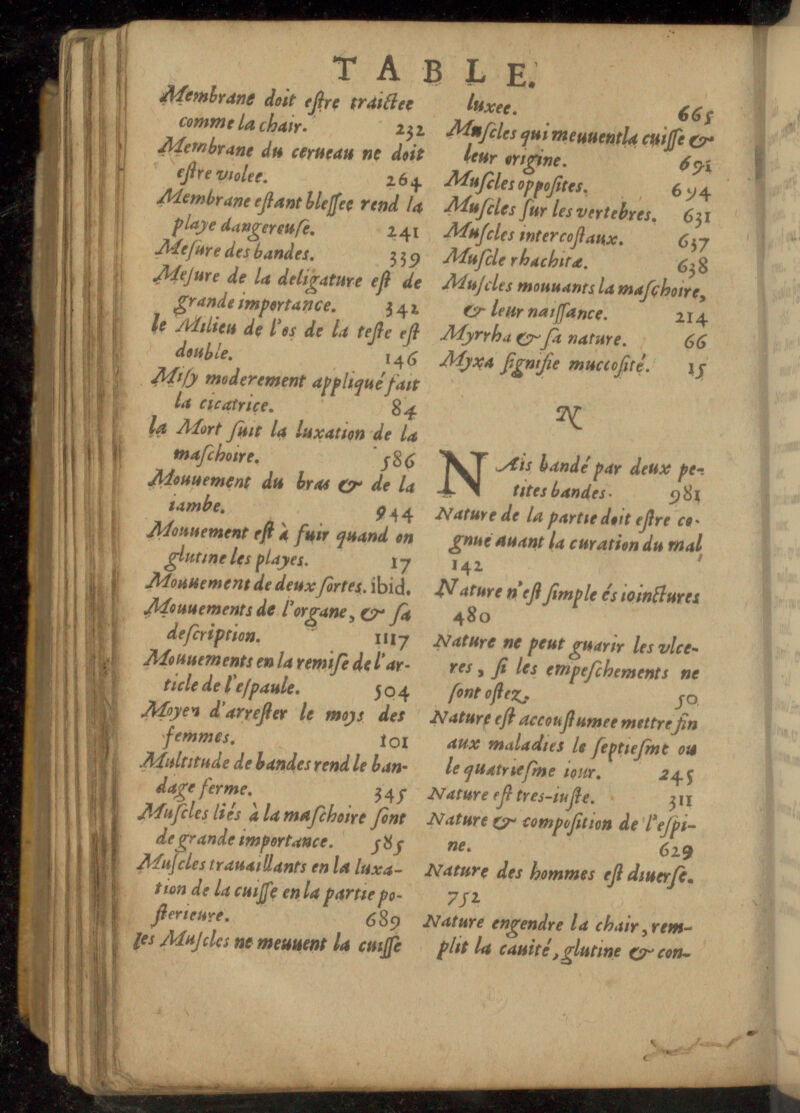 TABLE.
Membrane doit eſtre traictee
comme la chair. 232
Membrane du cerueau ne doit
eſtre violee. 264
Membrane eſtant bleſſee rend la
playe dangereuſe. 241
Meſure des bandes. 339
Meſure de la deligature eſt de
grande importance. 342
le Milieu de l'os de la teſte eſt
double. 146
Miſy moderement appliqué fait
la cicatrice. 84
la Mort ſuit la luxation de la
maſchoire. 586
Mouuement du bras & de la
iambe. 944
Mouuement eſt à fuir quand on
glutine les playes. 17
Mouuement de deux ſortes. ibid.
Mouuements de l'organe, & ſa
deſcription. 1117
Mouuements en la remiſe de l'ar-
ticle de l'eſpaule. 504
Moyen d'arreſter le moys des
femmes. 101
Multitude de bandes rend le ban-
dage ferme. 345
Muſcles liés à la maſchoire ſont
de grande importance. 585
Muſcles trauaillants en la luxa-
tion de la cuiſſe en la partie po-
ſterieure. 689
les Muſcles ne meuuent la cuiſſe
luxee. 665
Muſcles qui meuuent la cuiſſe &
leur origine. 691
Muſcles oppoſites. 694
Muſcles ſur les vertebres. 631
Muſcles intercoſtaux. 637
Muſcle rhachitæ. 638
Muſcles mouuants la maſchoire,
& leur naiſſance. 214
Myrrha & ſa nature. 66
Myxa ſignifie muccoſité. 15
N
NAis bandé par deux pe-
tites bandes. 981
Nature de la partie doit eſtre co-
gnuë auant la curation du mal
142
Nature n'eſt ſimple és ioinctures
480
Nature ne peut guarir les vlce-
res, ſi les empeſchements ne
ſont oſtez. 50
Nature eſt accouſtumee mettre fin
aux maladies le ſeptieſme ou
le quatrieſme iour. 245
Nature eſt tres-iuſte. 311
Nature & compoſition de l'eſpi-
ne. 629
Nature des hommes eſt diuerſe.
752
Nature engendre la chair, rem-
plit la cauité, glutine & con-